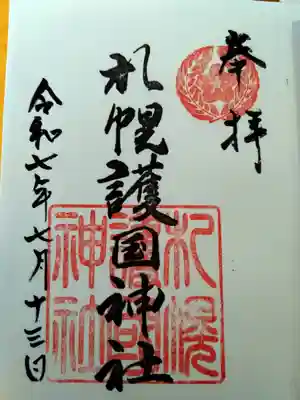 奉拝
札幌護国神社
令和七年七月十三日
札幌
護國
神社